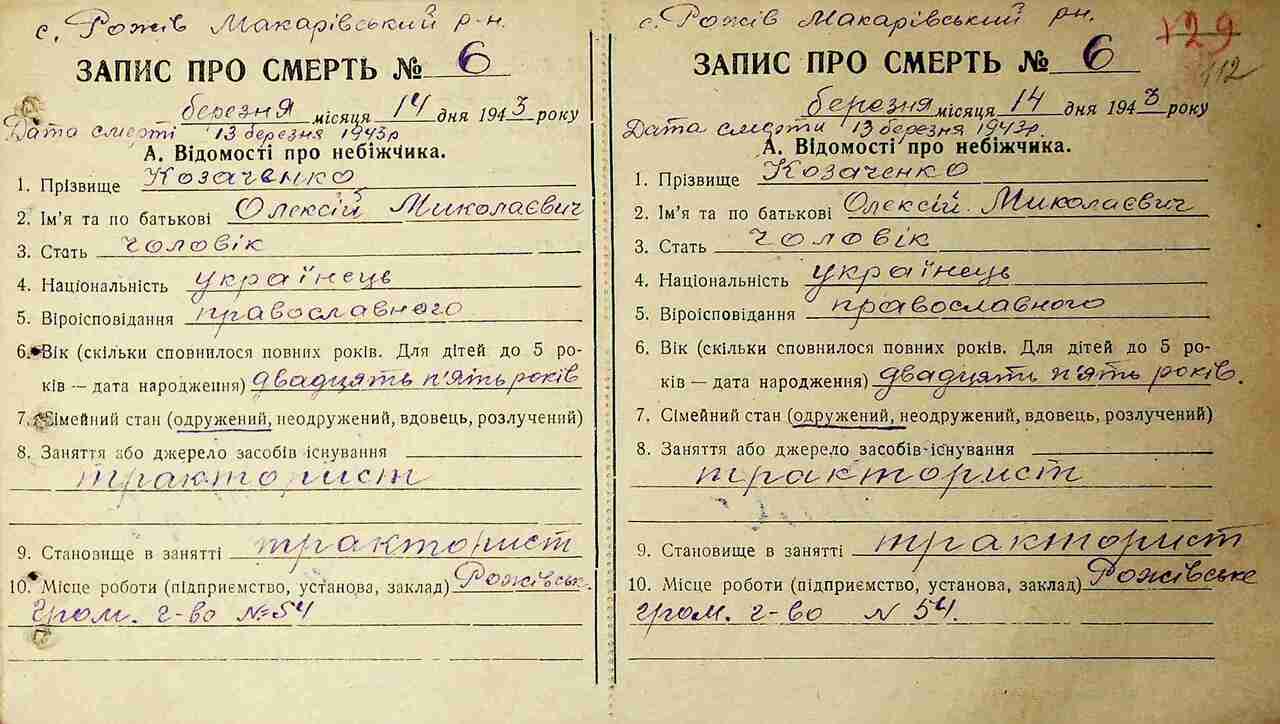 с. Рожів Макарівський р-н.
ЗАПИС ПРО СМЕРТЬ № 6
березня місяця 14 дня 1943 року
Дата смерті 13 березня 1943р
А. Відомості про небіжчика.
1. Прізвище Козаченко
2. Ім'я та по батькові Олексій Миколаєвич
3. Стать чоловік
4. Національність українець
5. Віроісповідання православного
6. Вік (скільки сповнилося повних років. Для дітей до 5 ро-
ків — дата народження) двадцять п'ять років
7. Сімейний стан (одружений, неодружений, вдовець, розлучений)
8. Заняття або джерело засобів існування
тракторист
9. Становище в занятті тракторист
10. Місце роботи (підприємство, установа, заклад) Рожівське
гром. г-во №54
с. Рожів Макарівський рн.
129
112
ЗАПИС ПРО СМЕРТЬ № 6
березня місяця 14 дня 1943 року
Дата смерти 13 березня 1943р.
А. Відомості про небіжчика.
1. Прізвище Козаченко
2. Ім'я та по батькові Олексій Миколаєвич
3. Стать чоловік
4. Національність українець
5. Віроісповідання православного
6. Вік (скільки сповнилося повних років. Для дітей до 5 ро-
ків — дата народження) двадцяти п'ять років.
7. Сімейний стан (одружений, неодружений, вдовець, розлучений)
8. Заняття або джерело засобів існування
тракторист
9. Становище в занятті тракторист
10. Місце роботи (підприємство, установа, заклад) Рожівське
гром. г-во N 54.